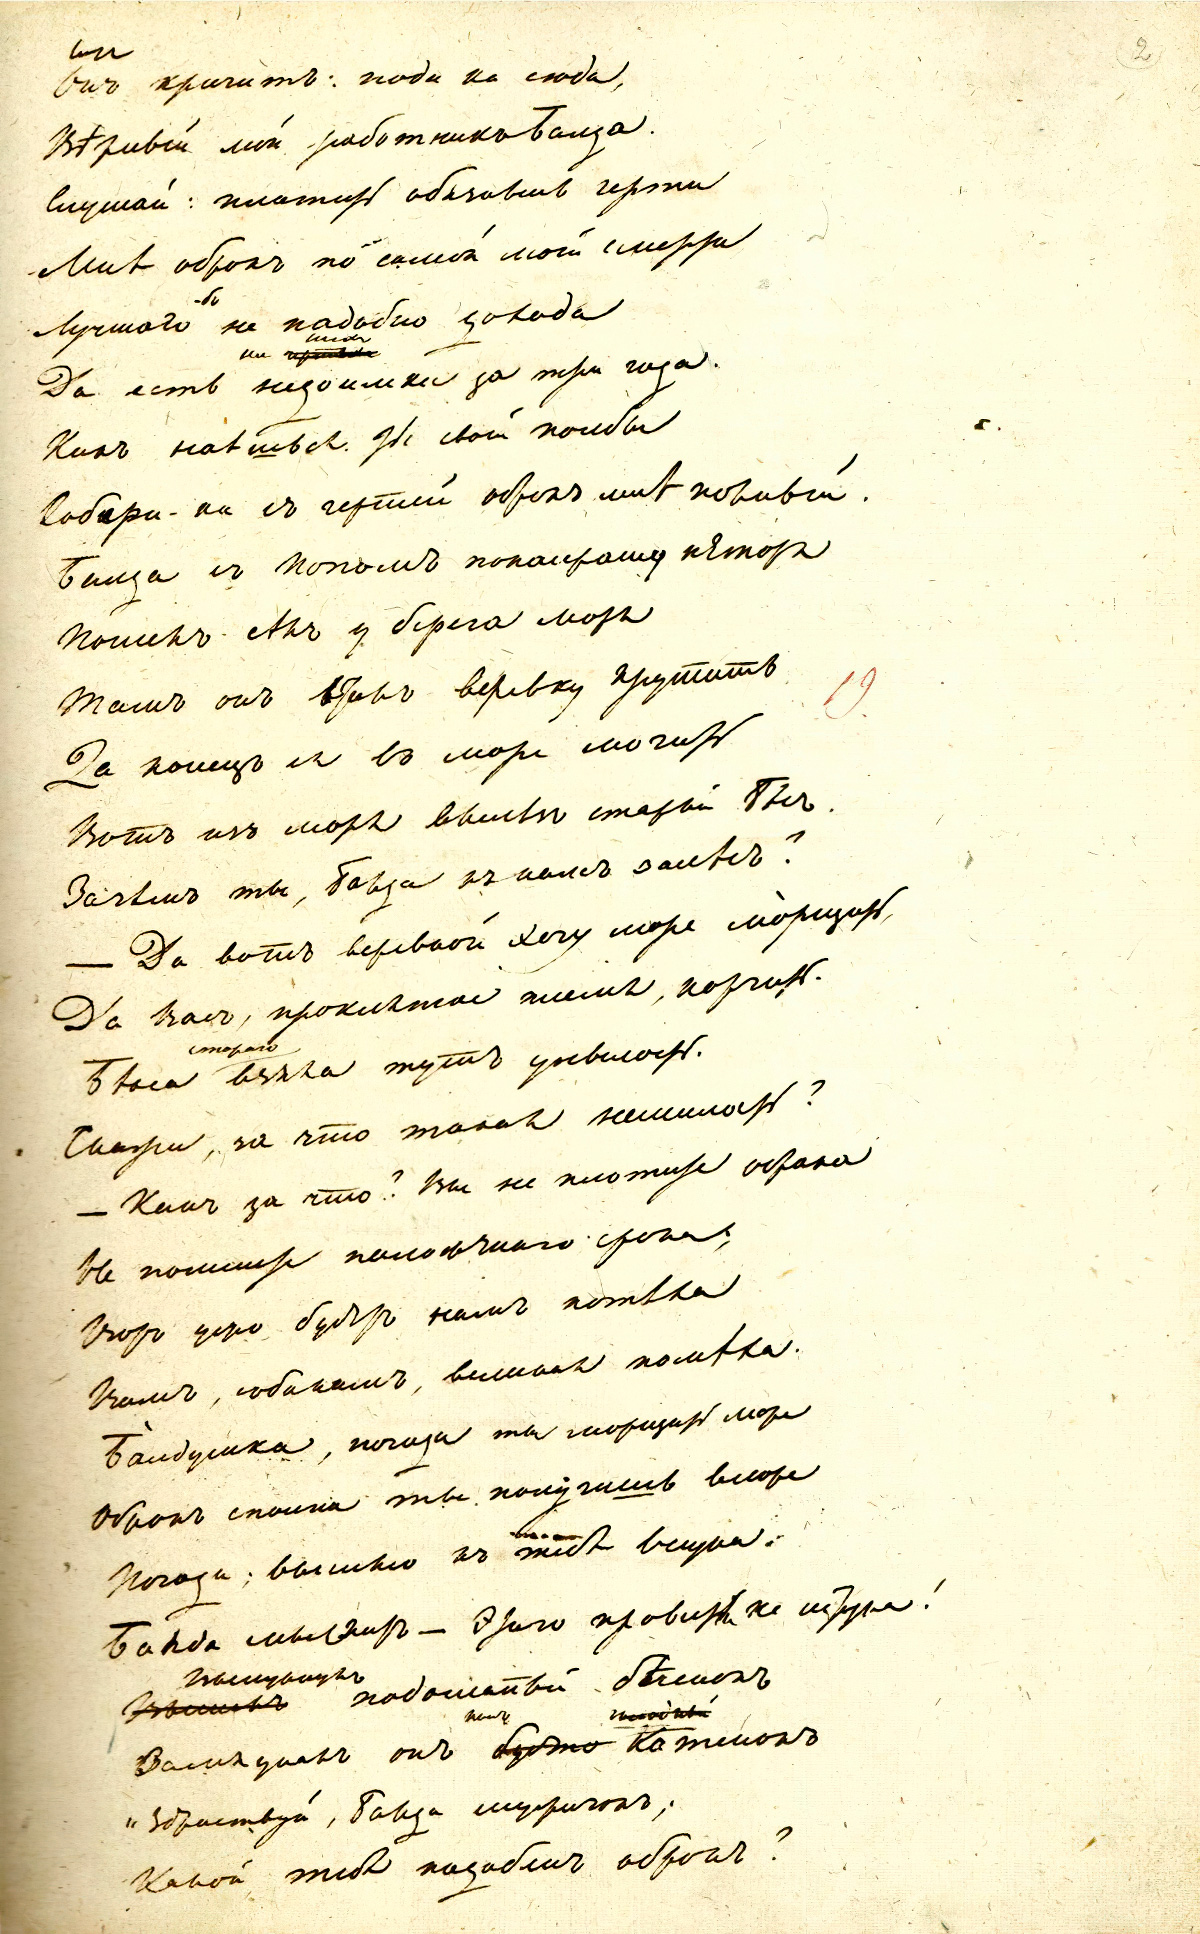 2
Онъ кричитъ: поди ка сюда,
Вѣрный мой работникъ Балда.
Слушай: платить обязались черти
Мнѣ оброкъ по самой моей смерти
Лучшаго-бъ не надобно дохода
Да есть на нихъ недоимки за три года.
Какъ наѣшься ты своей полбы
Собери-ка съ чертей оброкъ мнѣ полный.
Балда съ Попомъ понапрасну не споря
Пошелъ сѣлъ у берега моря
Тамъ онъ сталъ веревку крутить
19.
Да конецъ ея въ море мочить
Вотъ изъ моря вылѣзъ старый Бѣсъ.
Зачѣмъ ты, Балда къ намъ залѣзъ?
— Да вотъ веревкой хочу море морщить,
Да васъ, проклятое племя, корчить.
Бѣса стараго взяла тутъ унылость.
Скажи, за что такая немилость?
— Какъ за что? Вы не плотите оброка
Не помните положеннаго срока;
Вотъ ужо будетъ намъ потѣха
Вамъ, собакамъ, великая помѣха.
Балдушка, погоди ты морщить море
Оброкъ сполна ты получишь вскоре
Погоди, вышлю къ тебѣ внука.
Балда мыслитъ — Этаго провести не штука!
Вынырнулъ подосланный бѣсенокъ
Замяукалъ онъ какъ голодный Котенокъ
"Здраствуй, Балда мужичокъ;
Какой тебѣ надобенъ оброкъ?